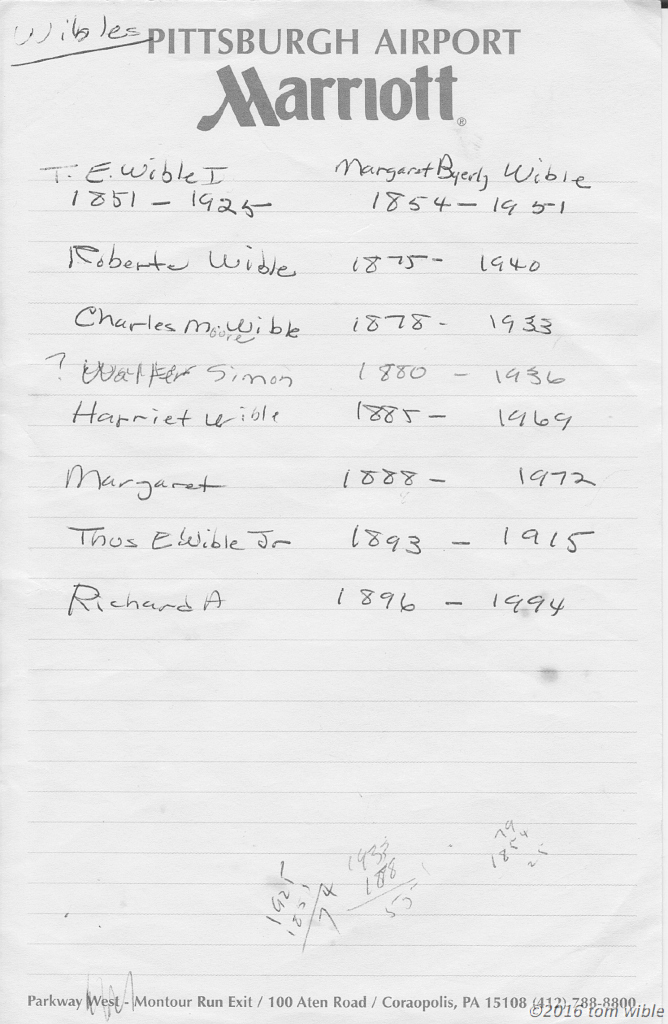 Wibles
PITTSBURGH AIRPORT
Marriott®
T. E. Wible I Margaret Byerly Wible
1851 - 1925 1854 - 1951
Roberta Wible 1875 - 1940
Charles Moore Wible 1878 - 1933
? Walter Simon 1880 - 1936
Harriet Wible 1885 - 1969
Margaret 1888 - 1972
Thos E Wible Jr 1893 - 1915
Richard A 1896 - 1994
1925
1851
74
1933
188
55
79
1854
25
Parkway West - Montour Run Exit / 100 Aten Road / Coraopolis, PA 15108 (412) 788-8800
©2016 tom wible